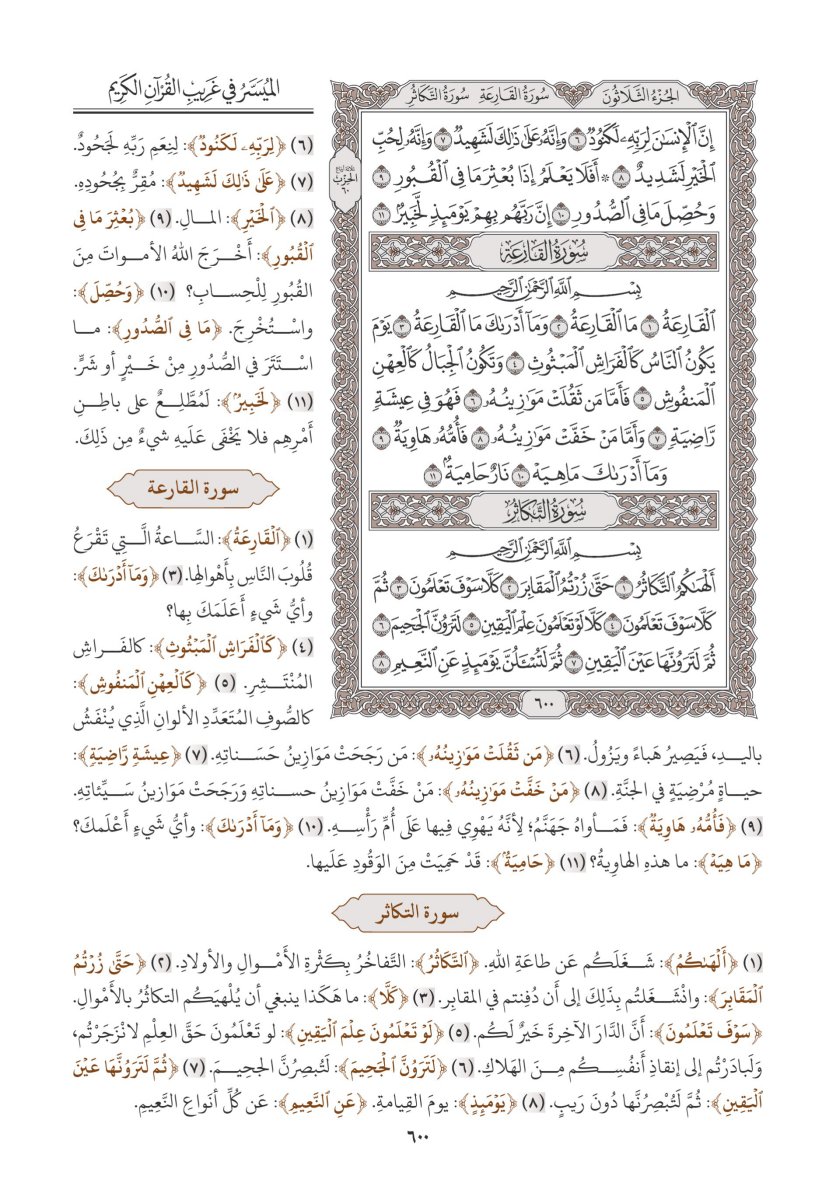 الميُسَّرُ في غَرِيبِ القُرْآنِ الكَرِيمِ
الجُزْءُ الثَّلَاثُونَ سُورَةُ القَارِعَةِ سُورَةُ التَّكَاثُرِ
إِنَّ ٱلْإِنسَٰنَ لِرَبِّهِۦ لَكَنُودٞ ٦ وَإِنَّهُۥ عَلَىٰ ذَٰلِكَ لَشَهِيدٞ ٧ وَإِنَّهُۥ لِحُبِّ
ٱلْخَيْرِ لَشَدِيدٌ ٨ ۞ أَفَلَا يَعْلَمُ إِذَا بُعْثِرَ مَا فِي ٱلْقُبُورِ ٩
وَحُصِّلَ مَا فِي ٱلصُّدُورِ ١٠ إِنَّ رَبَّهُم بِهِمْ يَوْمَئِذٖ لَّخَبِيرُۢ ١١
الحِزْبُ
٦٠
سُورَةُ القَارِعَةِ
بِسْمِ ٱللَّهِ ٱلرَّحْمَٰنِ ٱلرَّحِيمِ
ٱلْقَارِعَةُ ١ مَا ٱلْقَارِعَةُ ٢ وَمَآ أَدْرَىٰكَ مَا ٱلْقَارِعَةُ ٣ يَوْمَ
يَكُونُ ٱلنَّاسُ كَٱلْفَرَاشِ ٱلْمَبْثُوثِ ٤ وَتَكُونُ ٱلْجِبَالُ كَٱلْعِهْنِ
ٱلْمَنفُوشِ ٥ فَأَمَّا مَن ثَقُلَتْ مَوَٰزِينُهُۥ ٦ فَهُوَ فِي عِيشَةٖ
رَّاضِيَةٖ ٧ وَأَمَّا مَنْ خَفَّتْ مَوَٰزِينُهُۥ ٨ فَأُمُّهُۥ هَاوِيَةٞ ٩
وَمَآ أَدْرَىٰكَ مَا هِيَهْ ١٠ نَارٌ حَامِيَةُۢ ١١
سُورَةُ التَّكَاثُرِ
بِسْمِ ٱللَّهِ ٱلرَّحْمَٰنِ ٱلرَّحِيمِ
أَلْهَىٰكُمُ ٱلتَّكَاثُرُ ١ حَتَّىٰ زُرْتُمُ ٱلْمَقَابِرَ ٢ كَلَّا سَوْفَ تَعْلَمُونَ ٣ ثُمَّ
كَلَّا سَوْفَ تَعْلَمُونَ ٤ كَلَّا لَوْ تَعْلَمُونَ عِلْمَ ٱلْيَقِينِ ٥ لَتَرَوُنَّ ٱلْجَحِيمَ ٦
ثُمَّ لَتَرَوُنَّهَا عَيْنَ ٱلْيَقِينِ ٧ ثُمَّ لَتُسْـَٔلُنَّ يَوْمَئِذٍ عَنِ ٱلنَّعِيمِ ٨
٦٠٠
(٦) ﴿لِرَبِّهِۦ لَكَنُودٞ﴾: لِنِعَمِ رَبِّهِ لَجَحُودٌ.
(٧) ﴿عَلَىٰ ذَٰلِكَ لَشَهِيدٞ﴾: مُقِرٌّ بِجُحُودِهِ.
(٨) ﴿ٱلْخَيْرِ﴾: المـالِ. (٩) ﴿بُعْثِرَ مَا فِي
ٱلْقُبُورِ﴾: أَخْـرَجَ اللهُ الأمـواتَ مِنَ
القُبُورِ لِلْحِسابِ؟ (١٠) ﴿وَحُصِّلَ﴾:
واسْـتُخْرِجَ. ﴿مَا فِي ٱلصُّدُورِ﴾: مـا
اسْـتَتَرَ في الصُّدُورِ مِنْ خَـيْرٍ أو شَرٍّ.
(١١) ﴿لَّخَبِيرُۢ﴾: لَمُطَّلِـعٌ على باطِـنِ
أَمْرِهِم فلا يَخْفَى عَلَيهِ شيءٌ مِن ذَلِكَ.
سورة القارعة
(١) ﴿ٱلْقَارِعَةُ﴾: السَّـاعةُ الَّـتِي تَقْرَعُ
قُلُوبَ النَّاسِ بِأَهْوالِها. (٣) ﴿وَمَآ أَدْرَىٰكَ﴾:
وأيُّ شَيءٍ أَعلَمَكَ بِها؟
(٤) ﴿كَٱلْفَرَاشِ ٱلْمَبْثُوثِ﴾: كالفَـراشِ
المُنْتَـشِرِ. (٥) ﴿كَٱلْعِهْنِ ٱلْمَنفُوشِ﴾:
كالصُّوفِ المُتَعَدِّدِ الألوانِ الَّذِي يُنْفَشُ
باليـدِ، فَيَصِيرُ هَباءً ويَزُولُ. (٦) ﴿مَن ثَقُلَتْ مَوَٰزِينُهُۥ﴾: مَن رَجَحَتْ مَوَازِينُ حَسَناتِهِ. (٧) ﴿عِيشَةٖ رَّاضِيَةٖ﴾:
حيـاةٍ مُرْضِيَةٍ في الجنَّةِ. (٨) ﴿مَنْ خَفَّتْ مَوَٰزِينُهُۥ﴾: مَنْ خَفَّتْ مَوَازِينُ حسناتِهِ وَرَجَحَتْ مَوَازينُ سَـيِّئاتِهِ.
(٩) ﴿فَأُمُّهُۥ هَاوِيَةٞ﴾: فَمَـأواهُ جَهَنَّمُ؛ لِأنَّهُ يَهْوِي فِيها عَلَى أُمِّ رَأْسِـهِ. (١٠) ﴿وَمَآ أَدْرَىٰكَ﴾: وأيُّ شَيءٍ أَعْلَمكَ؟
﴿مَا هِيَهْ﴾: ما هذهِ الهاوِيةُ؟ (١١) ﴿حَامِيَةُۢ﴾: قَدْ حَمِيَتْ مِنَ الوَقُودِ عَلَيها.
سورة التكاثر
(١) ﴿أَلْهَىٰكُمُ﴾: شَـغَلَكُم عَن طاعَةِ اللهِ. ﴿ٱلتَّكَاثُرُ﴾: التَّفاخُرُ بِكَثْرةِ الأَمْـوالِ والأولادِ. (٢) ﴿حَتَّىٰ زُرْتُمُ
ٱلْمَقَابِرَ﴾: وانْشَـغَلتُم بِذَلِكَ إلى أَن دُفِنتم في المقابِرِ. (٣) ﴿كَلَّا﴾: ما هَكَذا ينبغي أن يُلْهيَكُم التكاثرُ بالأَمْوالِ.
﴿سَوْفَ تَعْلَمُونَ﴾: أَنَّ الدَّارَ الآخِرةَ خَيرٌ لَكُم. (٥) ﴿لَوْ تَعْلَمُونَ عِلْمَ ٱلْيَقِينِ﴾: لو تَعْلَمُونَ حَقَّ العِلْمِ لانْزَجَرْتُم،
وَلَبادَرْتُم إلى إنقاذِ أَنفُسِـكُم مِـنَ الهَلاكِ. (٦) ﴿لَتَرَوُنَّ ٱلْجَحِيمَ﴾: لَتُبصِرُنَّ الجحِيـمَ. (٧) ﴿ثُمَّ لَتَرَوُنَّهَا عَيْنَ
ٱلْيَقِينِ﴾: ثُمَّ لَتُبْصِرُنَّها دُونَ رَيبٍ. (٨) ﴿يَوْمَئِذٍ﴾: يومَ القِيامةِ. ﴿عَنِ ٱلنَّعِيمِ﴾: عَن كُلِّ أنواعِ النَّعِيمِ.
٦٠٠